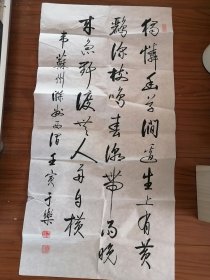 独怜幽草涧边生上有黄
鹂深树鸣春潮带雨晚
来急野渡无人舟自横
韦苏州滁州西涧壬寅于乐